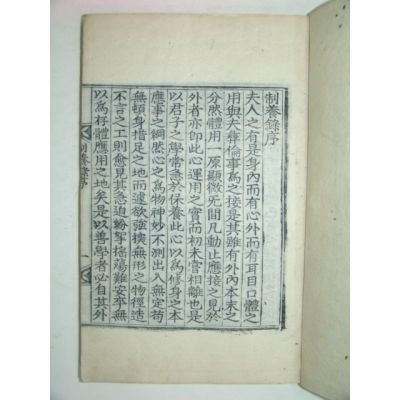 制養錄序
夫人之有是身內而有心外而有耳目口體之
用與夫彛倫事爲之接是其雖有外內本末之
分然體用一原顯微无間凡動止應接之見於
外者亦卽此心運用之實而初未嘗相離也是
以君子之學常急於保養此心以爲修身之本
應事之綱然心之爲物神妙不測出入無定苟
無頓身措足之地而遽欲強擒無形之物徑造
不言之工則愈見其急迫紛挐搖蕩難安卒無
以爲存體應用之地矣是以善學者必自其外
制養錄序
一